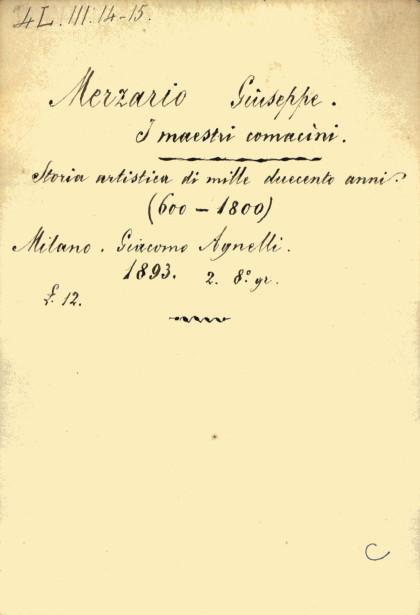 4L.III.14-15.
Merzario Giuseppe.
I maestri comacini.
Storia artistica di mille duecento anni.
(600 - 1800)
Milano. Giacomo Agnelli.
1893. 2. 8º gr.
£. 12.
C